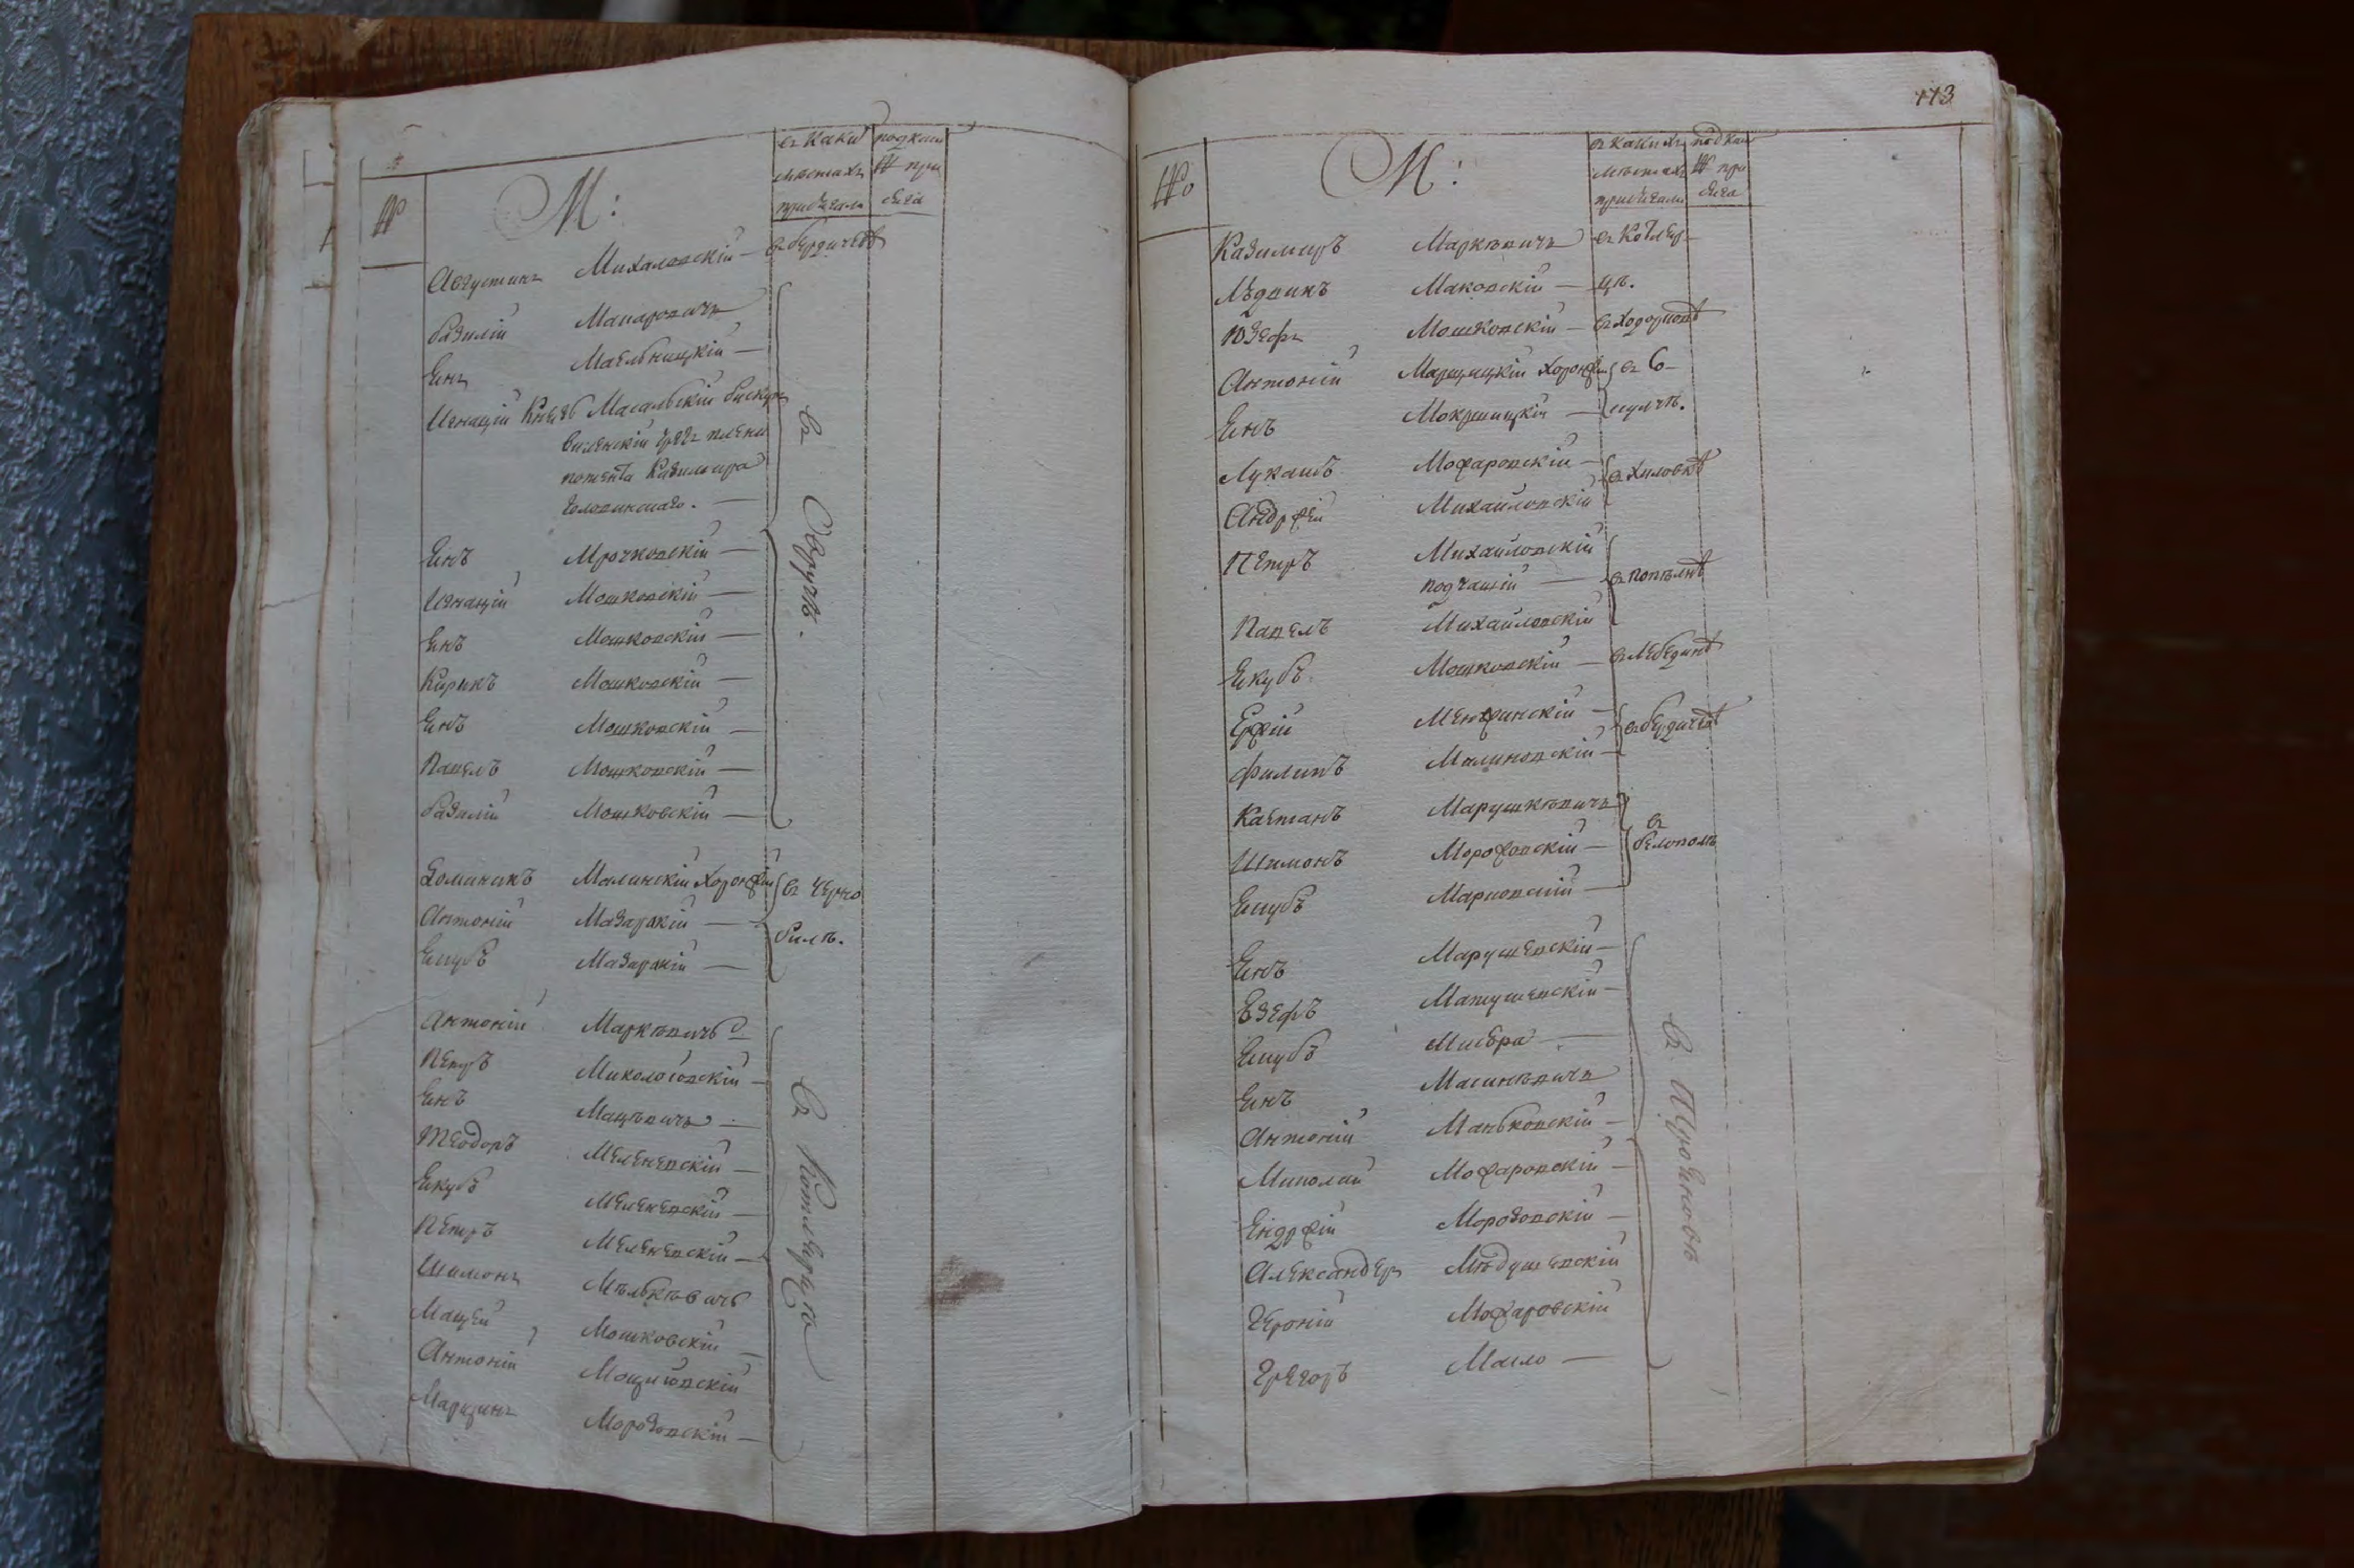 №
М:
въ каки
мѣстахъ
присягали
под каки
№ при
сяга
Августинъ Михаловскій — въ бердичевѣ
базилій Макаровичъ
Енъ Маельницкій —
Игнацій Князь Масальскій бискупъ
виленскій чрезъ плени
потента Казимира
головинскаго. —
Енъ Мрочковскій —
Игнацій Мошковскій —
Енъ Мошковскій —
Кирикъ Мошковскій —
Енъ Мошковскій —
Павелъ Мошковскій —
базилій Мошковскій —
въ Овручѣ.
Доминикъ Малинскій Хоронжій
Антоній Мазаракій —
Екубъ Мазаракій —
въ Черно
билѣ.
Антоній Маркѣвичъ —
Петръ Миколоіовскій —
Енъ Мацѣвичъ —
Теодоръ Меленевскій —
Екубъ Меленевскій —
Петръ Меленевскій —
Шимонъ Мѣлькѣвичъ
Мацей Мошковскій —
Антоній
Марцинъ Морозовскій —
въ Котелнѣ
113
№
М:
въ какихъ
мѣстахъ
присягали
под каки
№ при
сяга
Казимиръ Маркѣвичъ въ Котлер-
Лѣдвикъ Маковскій — цѣ.
Юзефъ Мошковскій — въ Ходорковѣ
Антоній Марцицкій Хоронжій въ С-
Енъ Мокрицкій —
ЛукашъМожаровскій —
Андржей Михайловскій
въ Хиловкѣ
Петръ Михайловскій
подчашій —
въ Попѣлнѣ
Павелъ Михайловскій
Екубъ Мошковскій — въ Лебединѣ
Ержій Менжинскій —
Филипъ Малиновскій —
въ бердичевѣ
Каетанъ Марушкѣвичъ
Шимонъ Морожовскій —
Екубъ Марковскій —
въ
белополѣ
Енъ Марушевскій —
Езефъ Матушевскій —
Екубъ Мисюра —
Енъ Масинкѣвичъ
Антоній Маньковскій —
Миколай Можаровскій —
Ендржій Морозовскій —
Александеръ Мѣдушевскій
Героній Можаровскій
Грегоръ Масло —